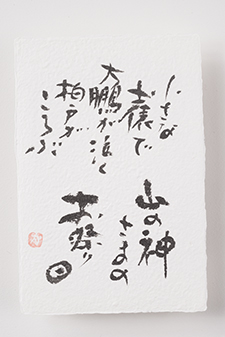 小さな
土俵で
大鵬が泣く
柏戸が
ころぶ
山の神
さまの
お祭り